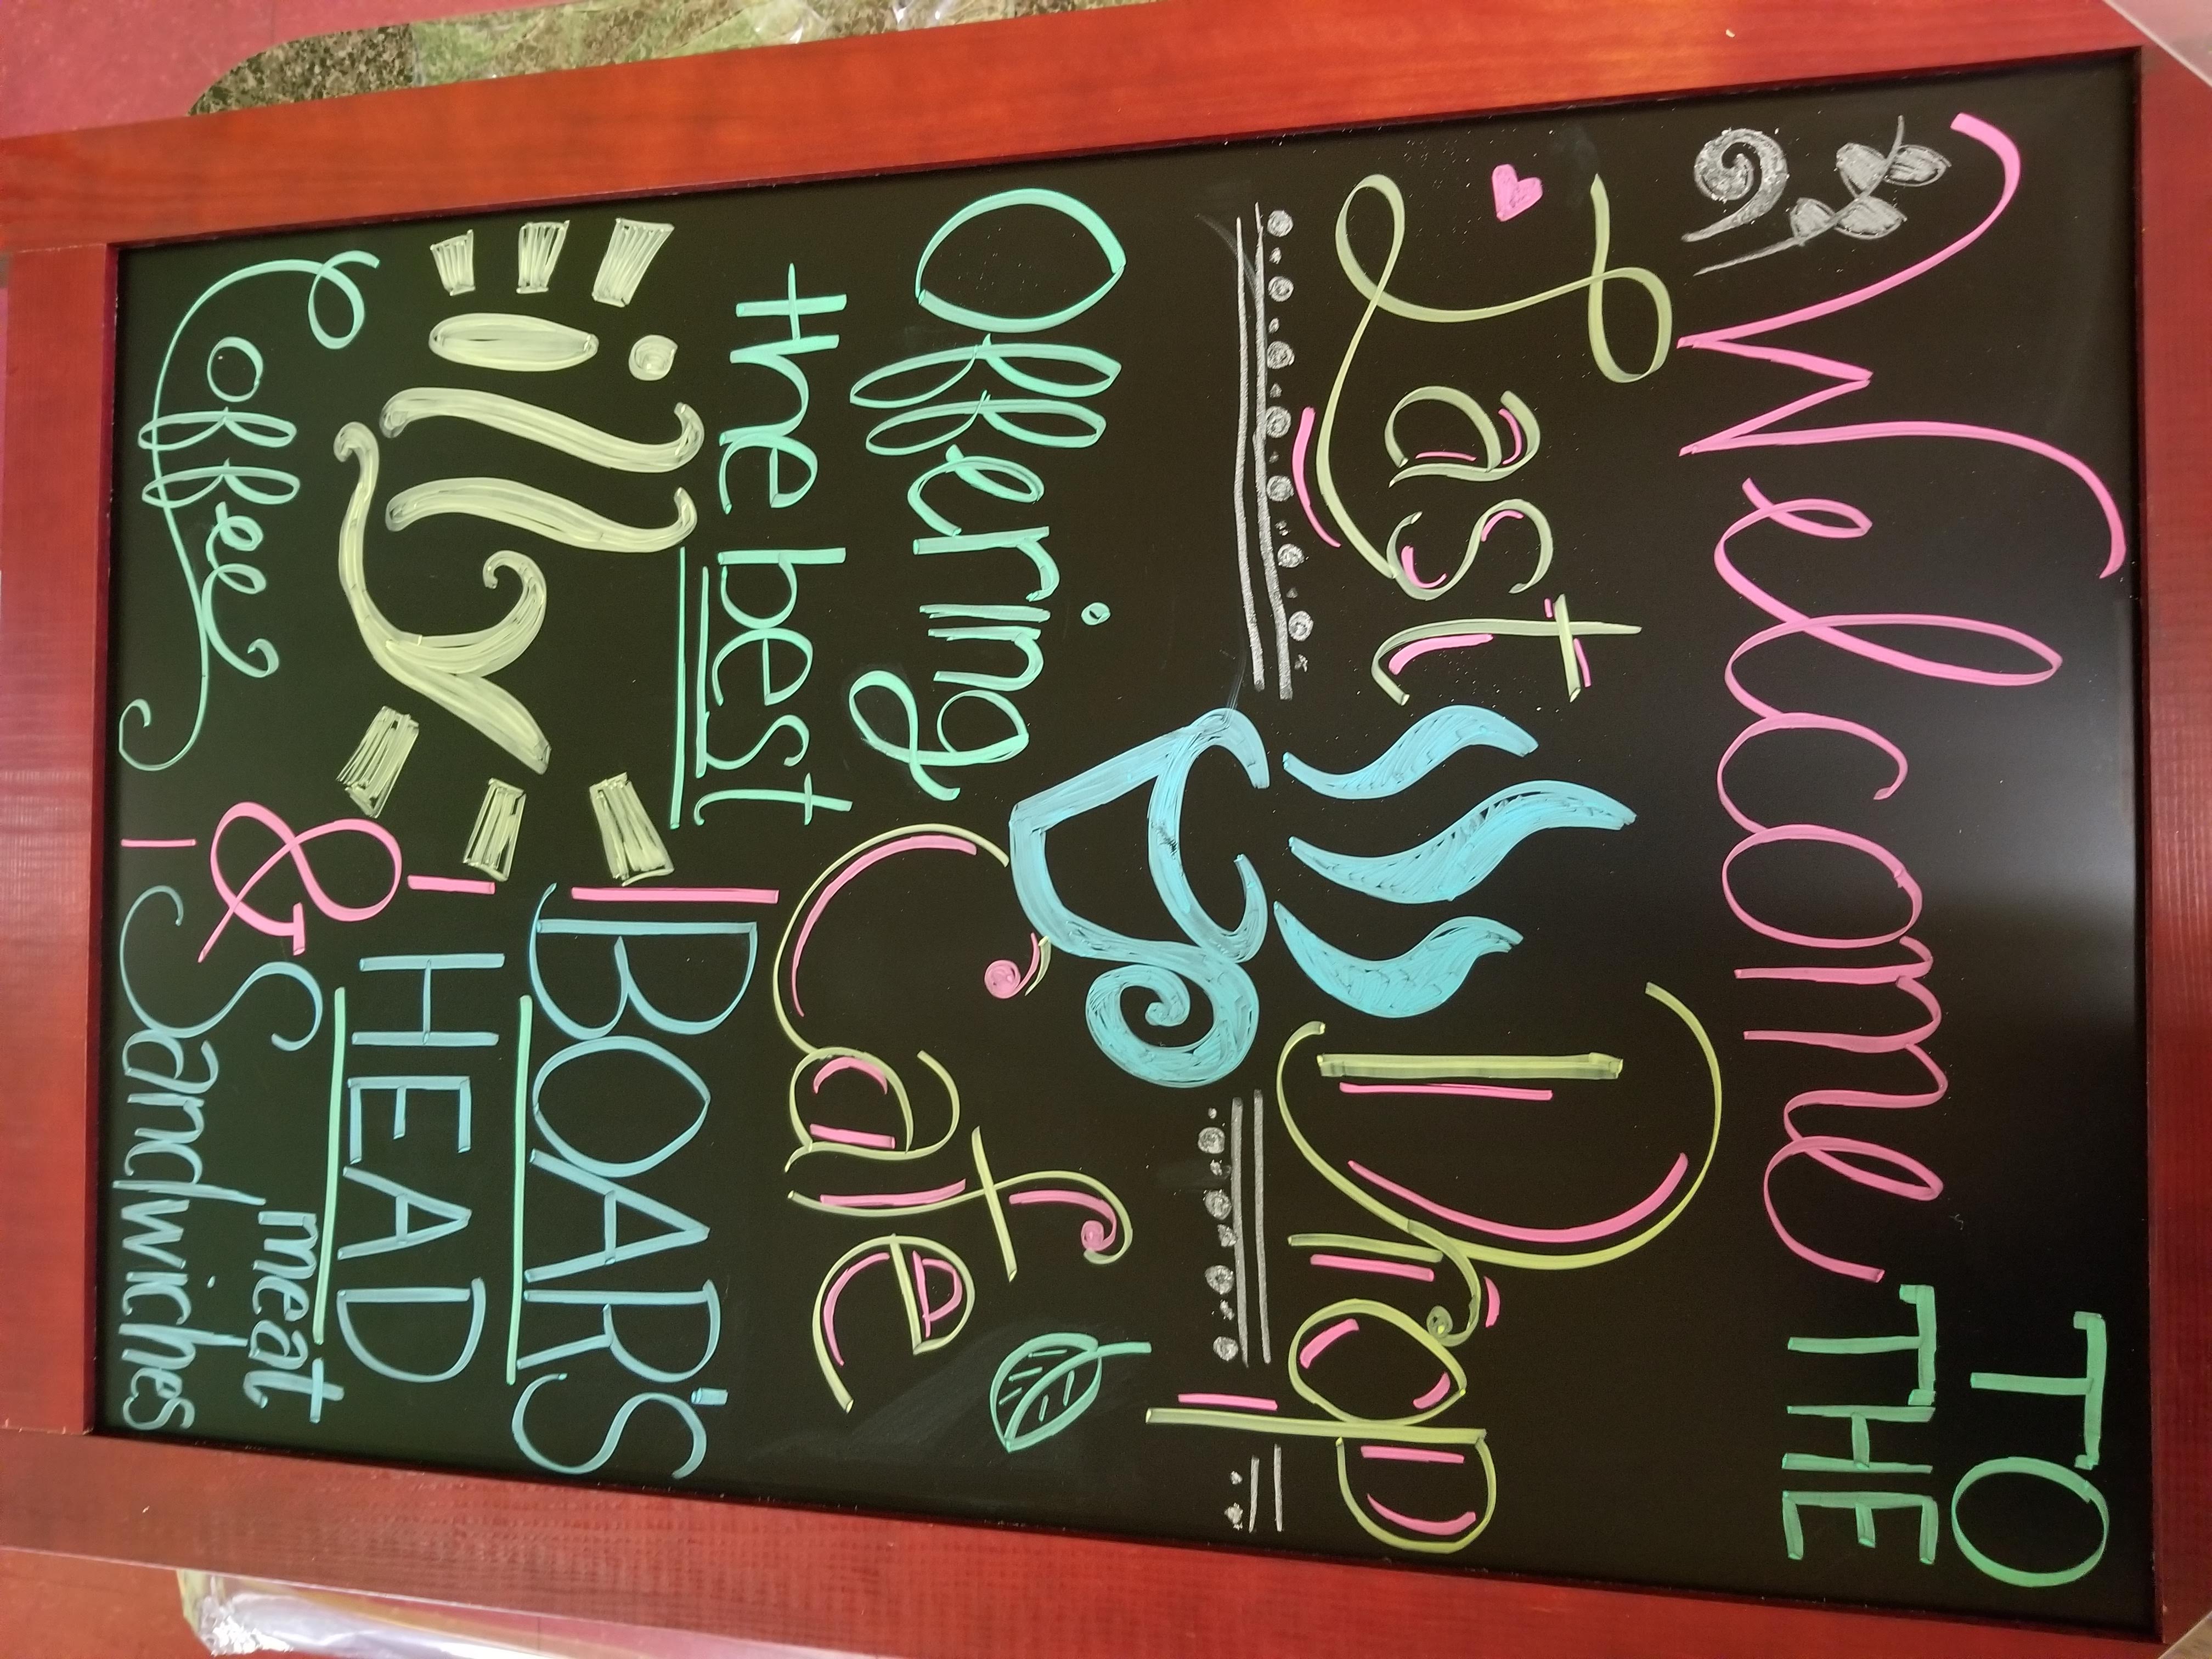 Welcome TO
THE
Last Drop
Cafe
Offering
the best
illy
Coffee
&
BOAR'S
HEAD
meat
Sandwiches